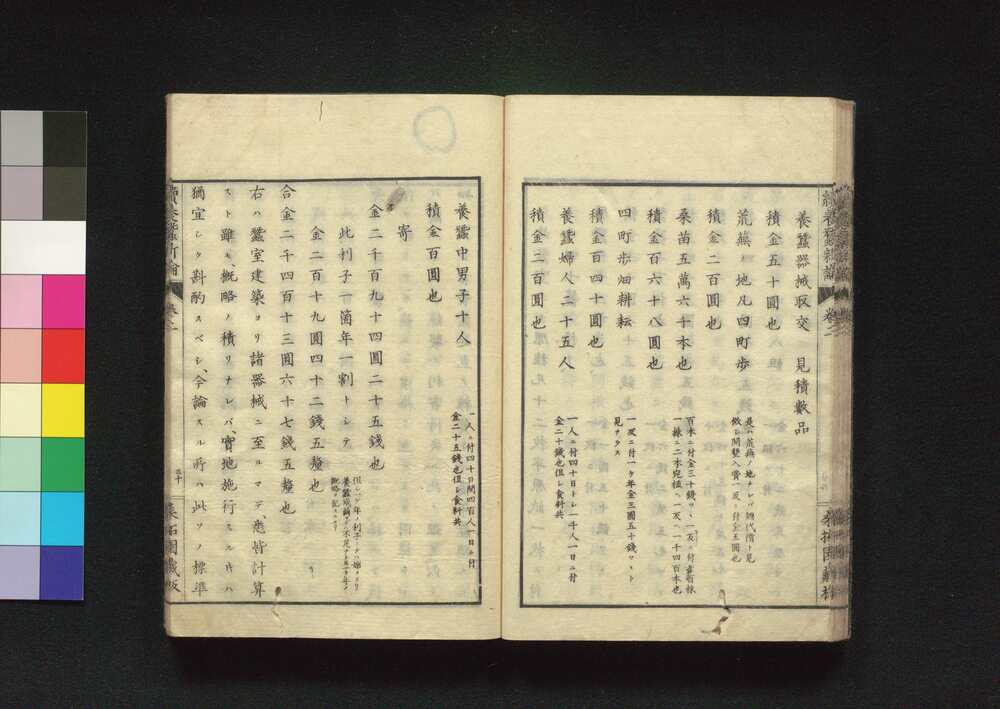 養蠶器械取交　見積數品
積金五十圓也
荒蕪ノ地凡四町歩
是ハ荒蕪ノ地ナレバ地代償ト見
做シ開墾入費一反ニ付金五圓也
積金二百圓也
桑苗五萬六千本也
百本ニ付金三十錢
積金百六十八圓也
四町歩畑耕耘
一反ニ付一ケ年金三圓五十錢ツヽト
見ナラス
積金百四十圓也
養蠶婦人二十五人
一人ニ付四十日トシ一千人一日ニ付
金二十錢也但シ食料共
積金二百圓也
養蠶中男子十人
一人ニ付四十日間四百人一日ニ付
金二十五錢也但シ食料共
積金百圓也
寄
金二千百九十四圓二十五錢也
此利子一箇年一割トシテ
金二百十九圓四十二錢五釐也
合金二千四百十三圓六十七錢五釐也
右ハ蠶室建築ヨリ諸器械ニ至ルマデ、悉皆計算
スト雖モ、概略ノ積リナレバ、實地施行スル時ハ
猶宜シク斟酌スベシ、今論スル所ハ此ソノ標準
續養蠶新論
卷之二
三十
桑柘園藏板